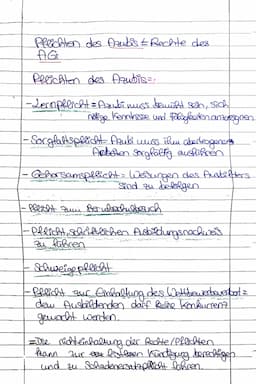 Pflichten des Azubis ≙ Rechte des
AG
Pflichten des Azubis:
- Lernpflicht = Azubi muss bemüht sein, sich
nötige Kenntnisse und Fähigkeiten anzueignen
- Sorgfaltspflicht = Azubi muss ihm übertragenen
Arbeiten sorgfältig ausführen
- Gehorsamspflicht = Weisungen des Ausbilders
sind zu befolgen
- Pflicht zum Berufsschulbesuch
- Pflicht, schriftlichen Ausbildungsnachweis
zu führen
- Schweigepflicht
- Pflicht zur Einhaltung des Wettbewerbsverbot =
dem Ausbildenden darf keine Konkurrenz
gemacht werden.
= Die nichteinhaltung der Rechte/Pflichten
kann zur fristlosen Kündigung berechtigen
und zu Schadensersatzpflicht führen.